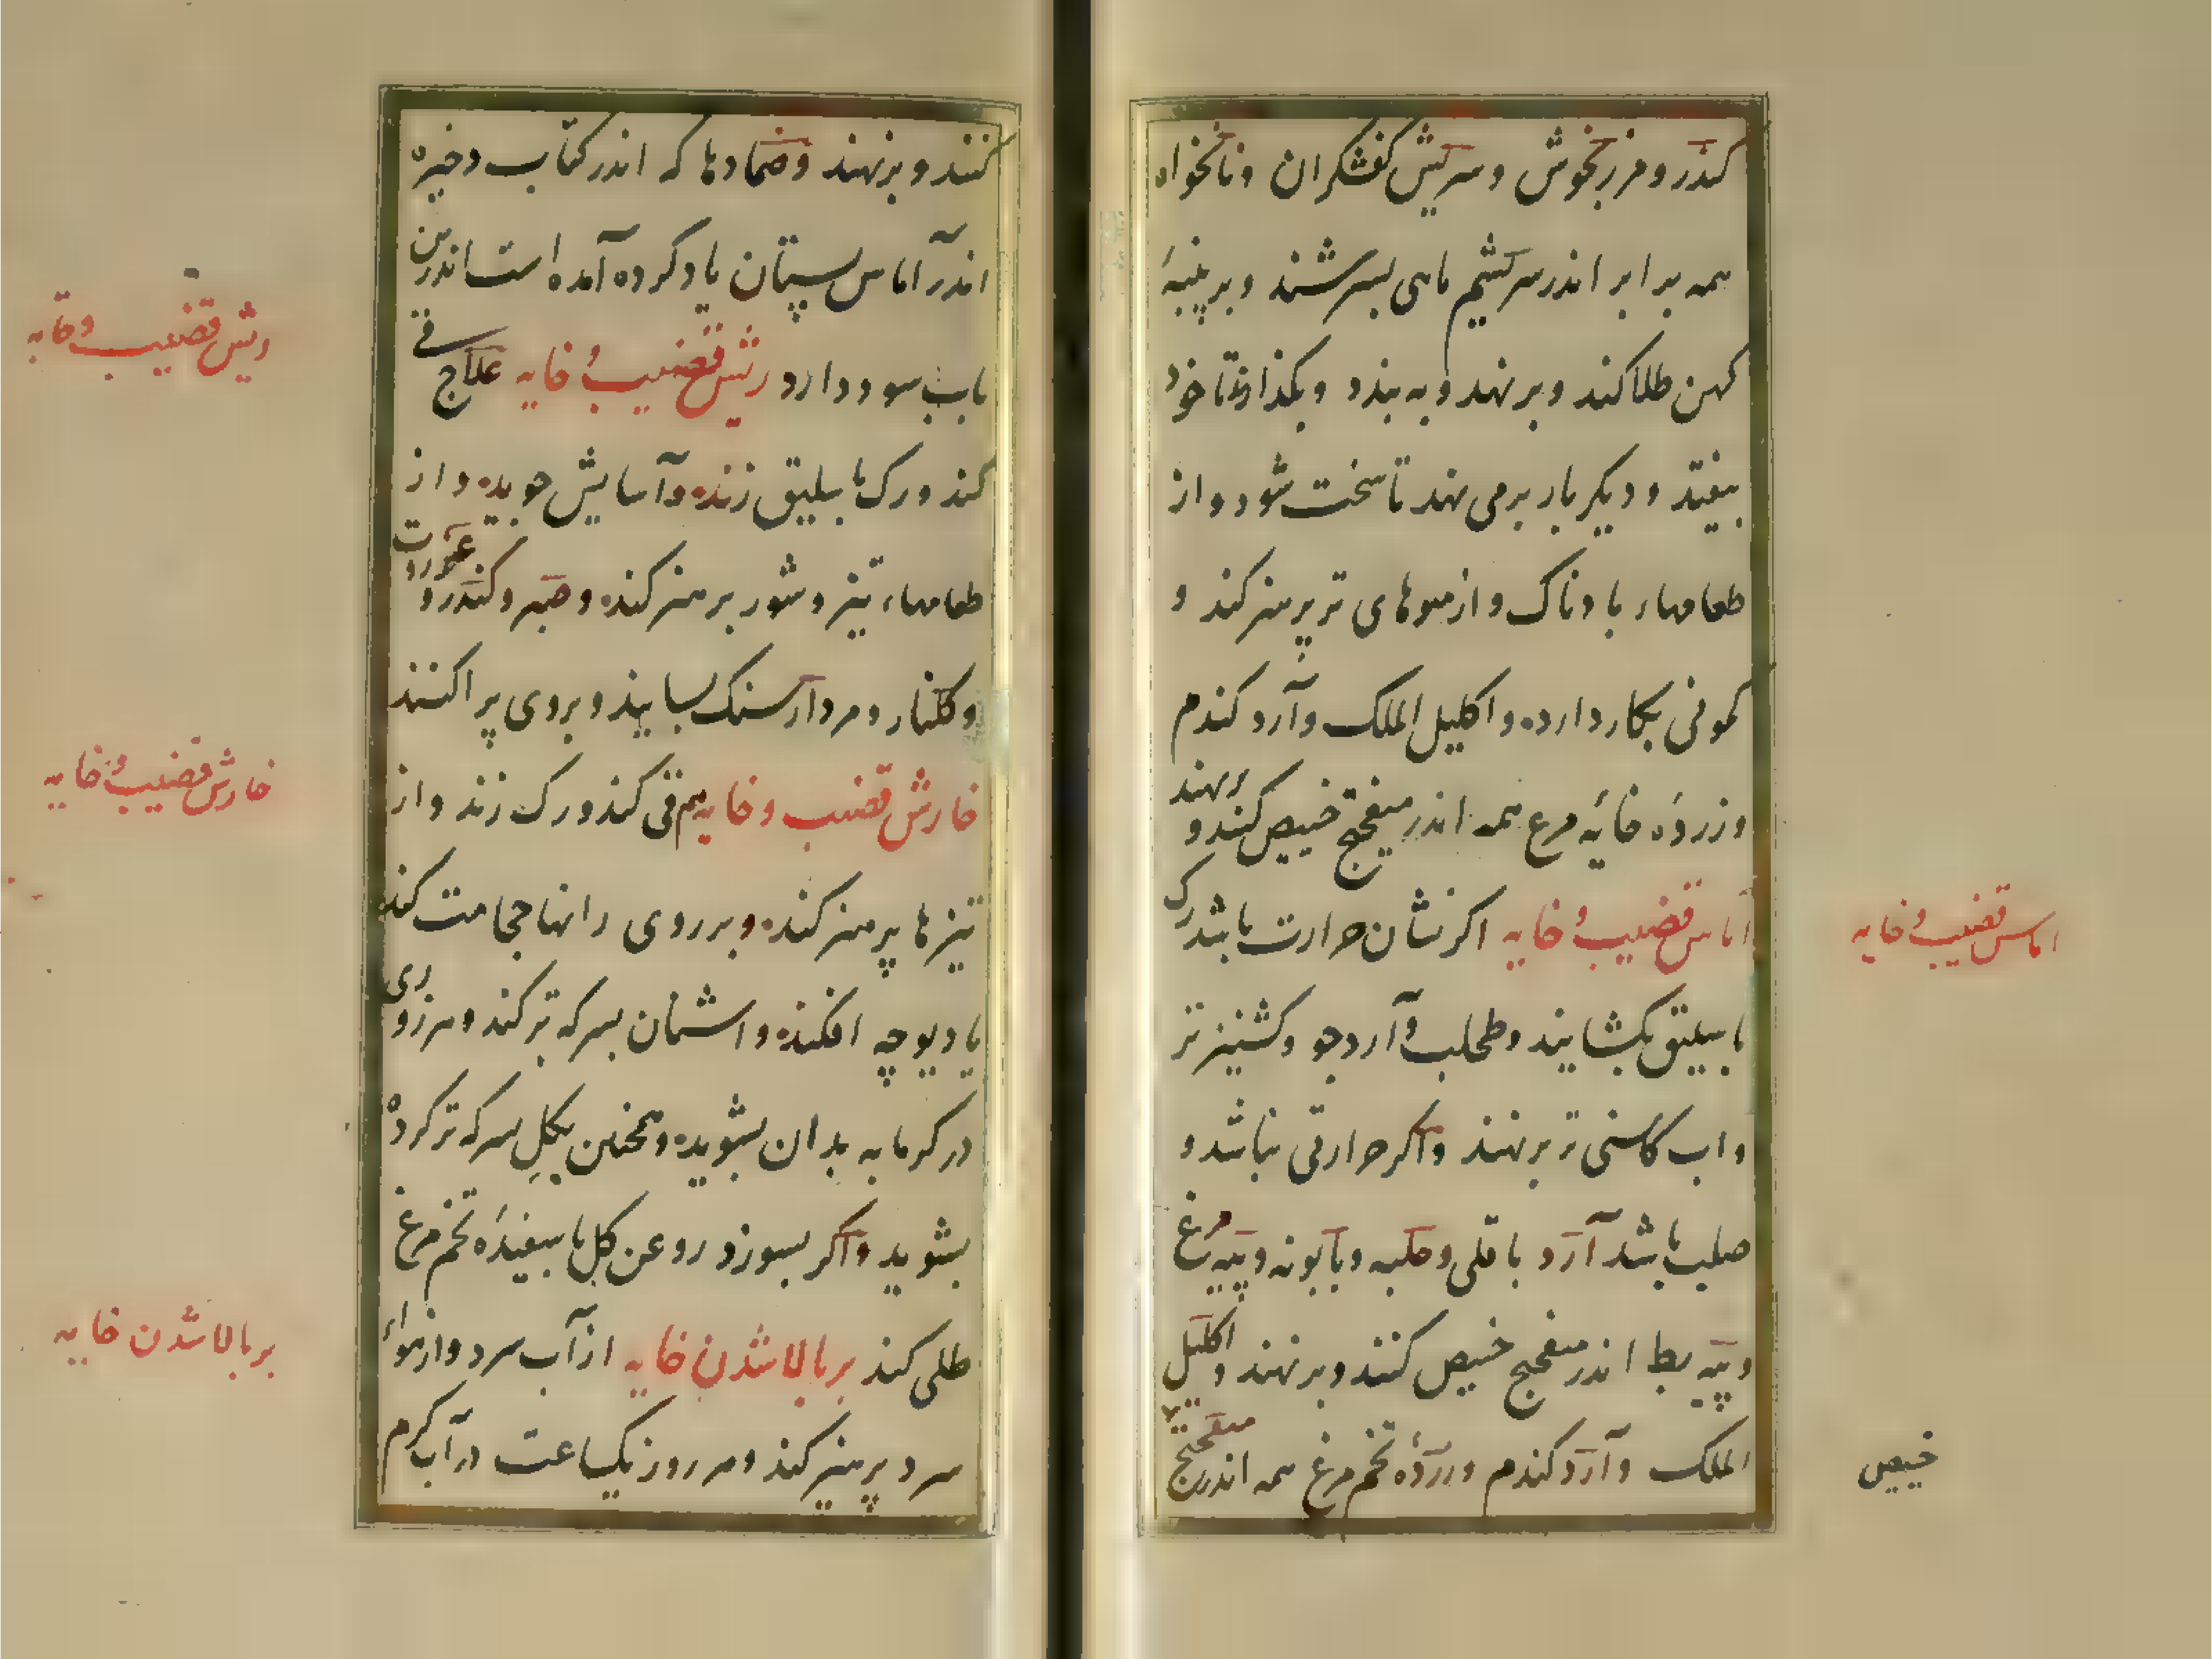 کندر و مرزنجوش و سریش کفشگران و نانخواه
همه برابر اندر سریشم ماهی بسرشند و بر پنبهٔ
کهن طلا کند و برنهد و به بندد و بگذارند تا خود
بیفتد و دیگر بار برمی نهد تا سخت شود و از
طعامهاء بادناک و از میوهای تر پرهیز کند و
کمونی بکار دارد و اکلیل الملک و آرد کندم
و زردهٔ خایهٔ مرغ همه اندر میفختج خبیص کنند و برنهند
اماس قضیب و خایه اکر نشان حرارت باشد رک
باسلیق بکشایند و طحلب و آرد جو و کشنیز تر
و اب کاسنی تر برنهند و اکر حرارتی نباشد و
صلب باشد آرد باقلی و حلبه و بابونه و پیه مرغ
و پیه بط اندر میفختج خبیص کنند و برنهند و اکلیل
الملک و آرد کندم و زردهٔ تخم مرغ همه اندر میفختج
اماس قضیب و خایه
خبیص
کنند و برنهند و ضمادها که اندر کتاب دخیره
اندر اماس پستان یاد کرده آمده است اندرین
باب سود دارد ریش قضیب و خایه علاج قی
کند و رک باسلیق زند و آسایش جوید و از
طعامهاء تیز و شور پرهیز کند و صبر و کندر و عنزروت
و کلنار و مردارسنک بسایند و بروی پراکنند
خارش قضیب و خایه هم قی کند و رک زند و از
تیزها پرهیز کند و بر روی رانها حجامت کند
یا دیوچه افکند و اشنان بسرکه تر کند و هر روزی
در کرمابه بدان بشوید و همچنین بکل سرکه تر کرده
بشوید و اکر بسوزد روغن کل با سپیدهٔ تخم مرغ
طلی کند بربالا شدن خایه از آب سرد و از هواء
سرد پرهیز کند و هر روز یکساعت در آب کرم
ریش قضیب و خایه
خارش قضیب و خایه
بربالا شدن خایه